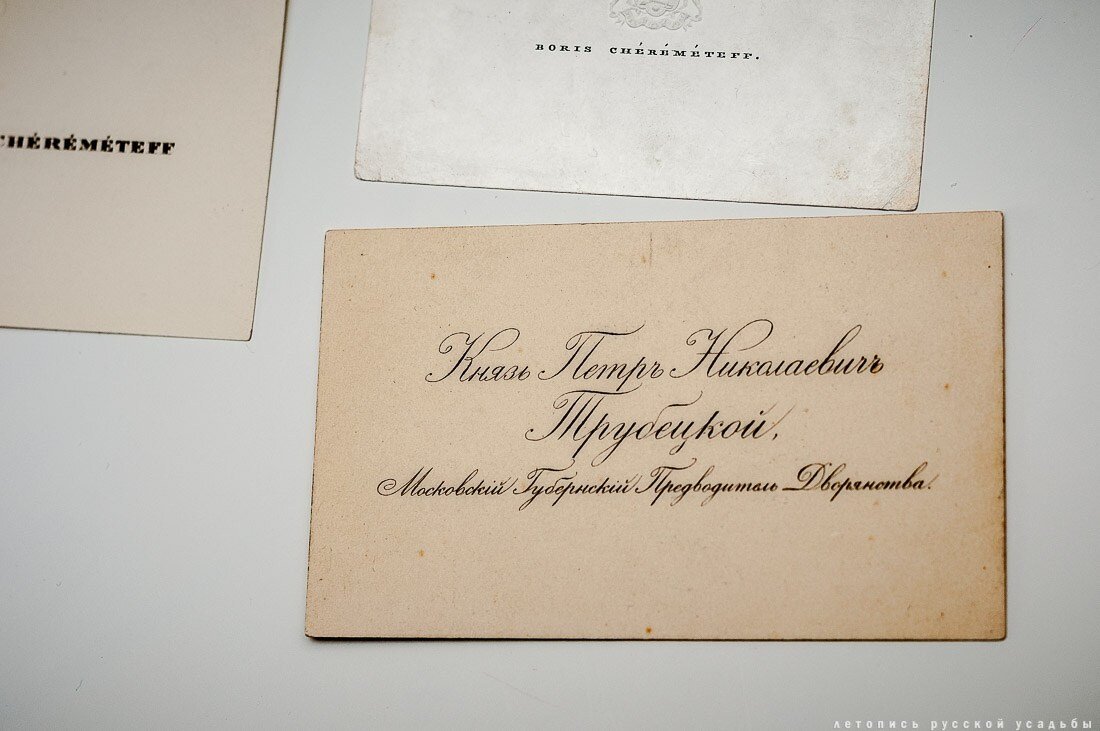 BORIS CHÉRÉMÉTEFF.
CHÉRÉMÉTEFF
Князь Петръ Николаевичъ
Трубецкой,
Московскій Губернскій Предводитель Дворянства.
летопись русской усадьбы